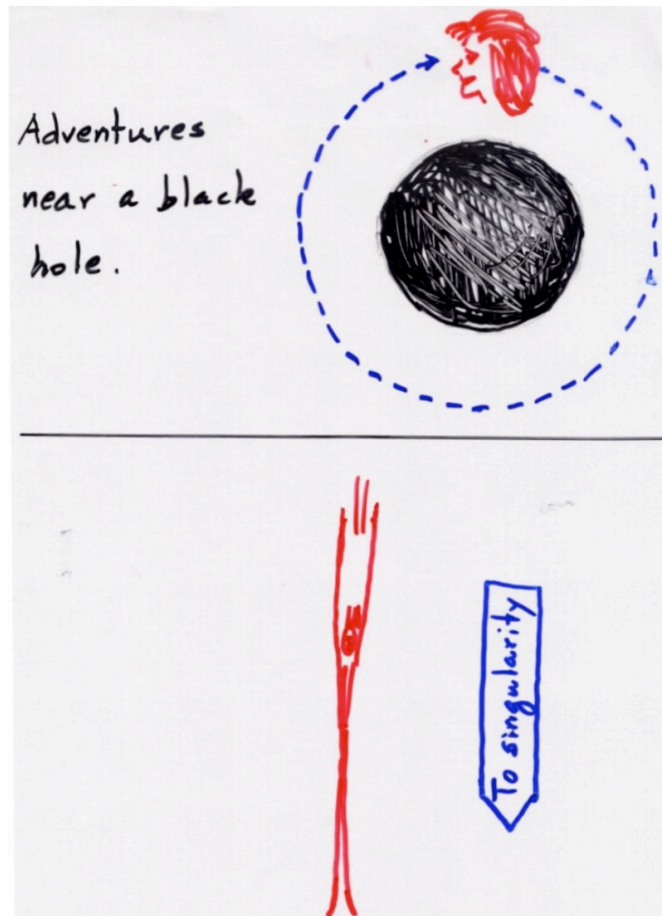 Adventures
near a black
hole.
To singularity